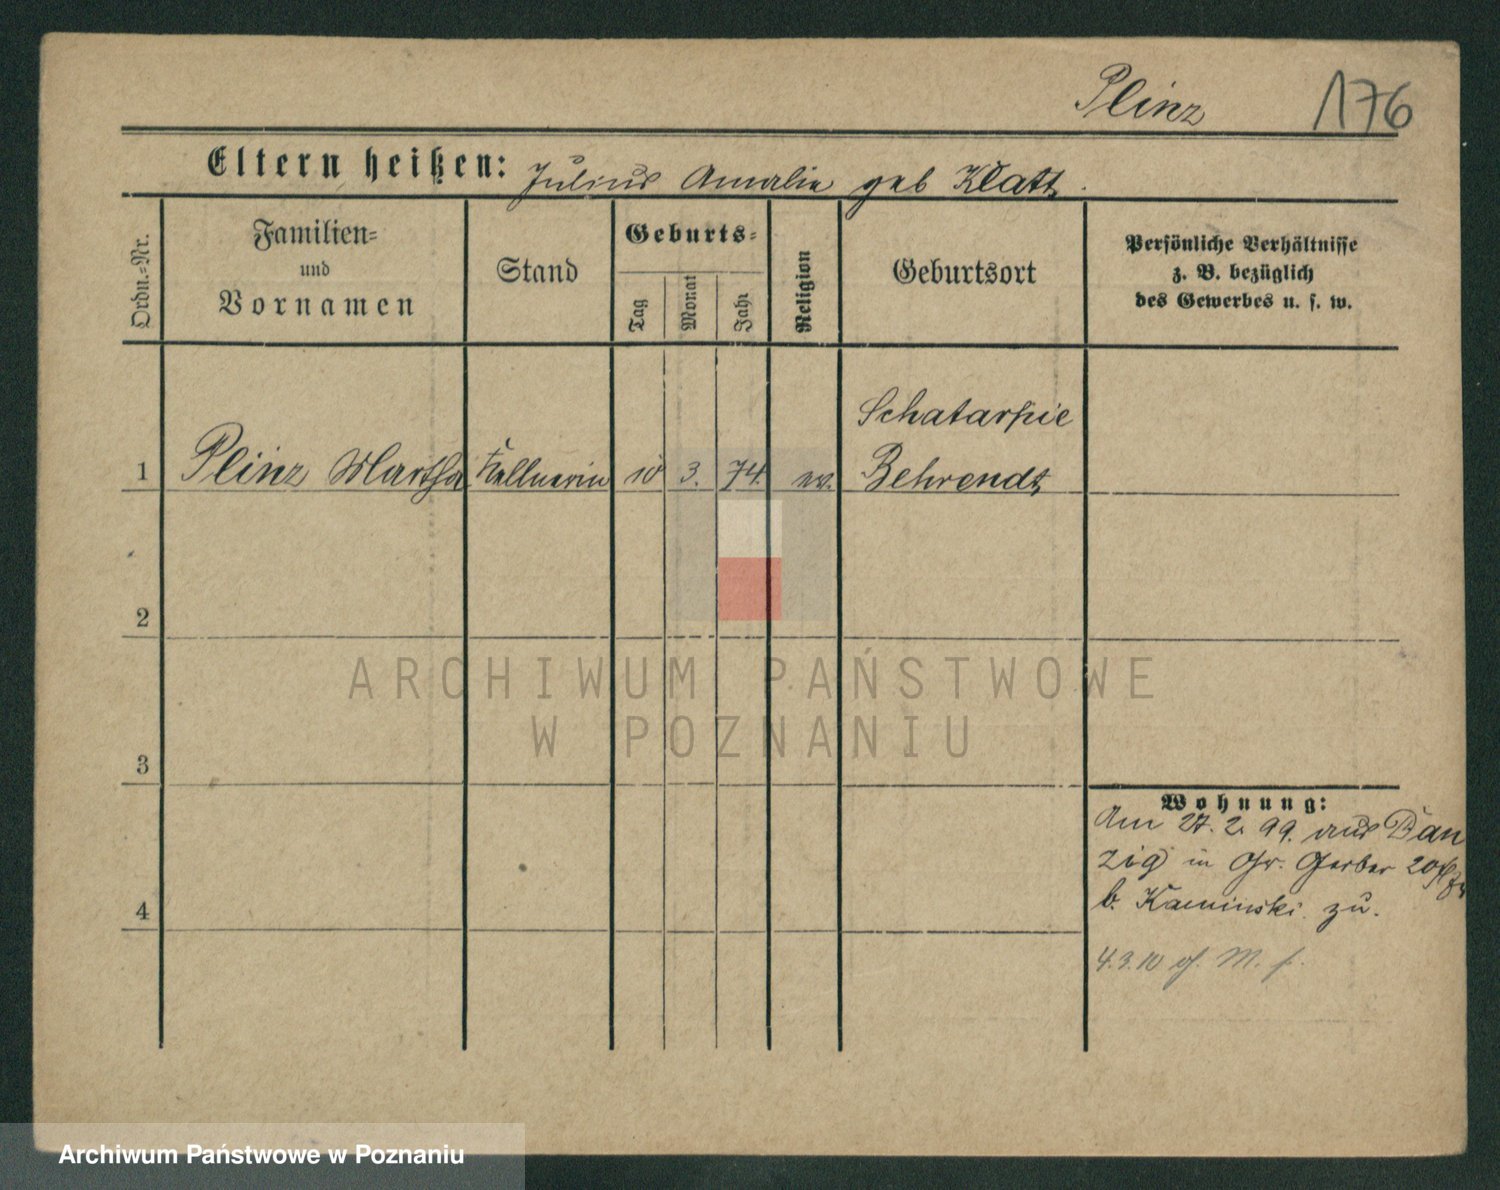 Plinz 176
Eltern heißen: Julius Amalie geb Klatt.
Ordn.-Nr.
Familien-
und
Vornamen
Stand
Geburts-
Tag
Monat
Jahr
Religion
Geburtsort
Persönliche Verhältnisse
z. B. bezüglich
des Gewerbes u. s. w.
Schatarpie
1 Plinz Martha Kellnerin 10 3. 74. ev. Behrendt
2
ARCHIWUM PAŃSTWOWE
W POZNANIU
3
Wohnung:
Am 27. 2. 99. aus Dan
zig in Gr. Gerber 20
b. Kaminski zu.
4
4.3.10
Archiwum Państwowe w Poznaniu